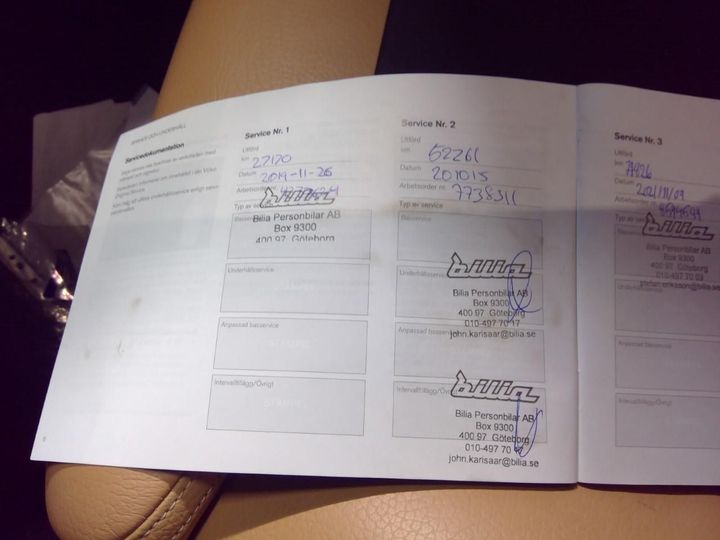 SERVICE OCH UNDERHÅLL
Servicedokumentation
Service Nr. 1
Utförd
km 27170
Datum 2019-11-26
Arbetsorder nr.
Typ av service
bilia
Bilia Personbilar AB
Box 9300
400 97 Göteborg
Underhållsservice
Anpassad basservice
Intervalltillägg/Övrigt
STÄMPEL
Service Nr. 2
Utförd
km 52261
Datum 201015
Arbetsorder nr. 7738311
Typ av service
Basservice
bilia
Underhållsservice
Bilia Personbilar AB
Box 9300
400 97 Göteborg
010-497 70 17
Anpassad basservice
john.karisaar@bilia.se
bilia
Intervalltillägg/Övrigt
Bilia Personbilar AB
Box 9300
400 97 Göteborg
010-497 70
john.karisaar@bilia.se
Service Nr. 3
Utförd
km
Datum 2021/11/09
Arbetsorder nr.
Typ av
bilia
Bilia Personbilar AB
Box 9300
400 97 Göteborg
010-497 70 03
stefan.eriksson@bilia.se
Anpassad basservice
Intervalltillägg/Övrigt